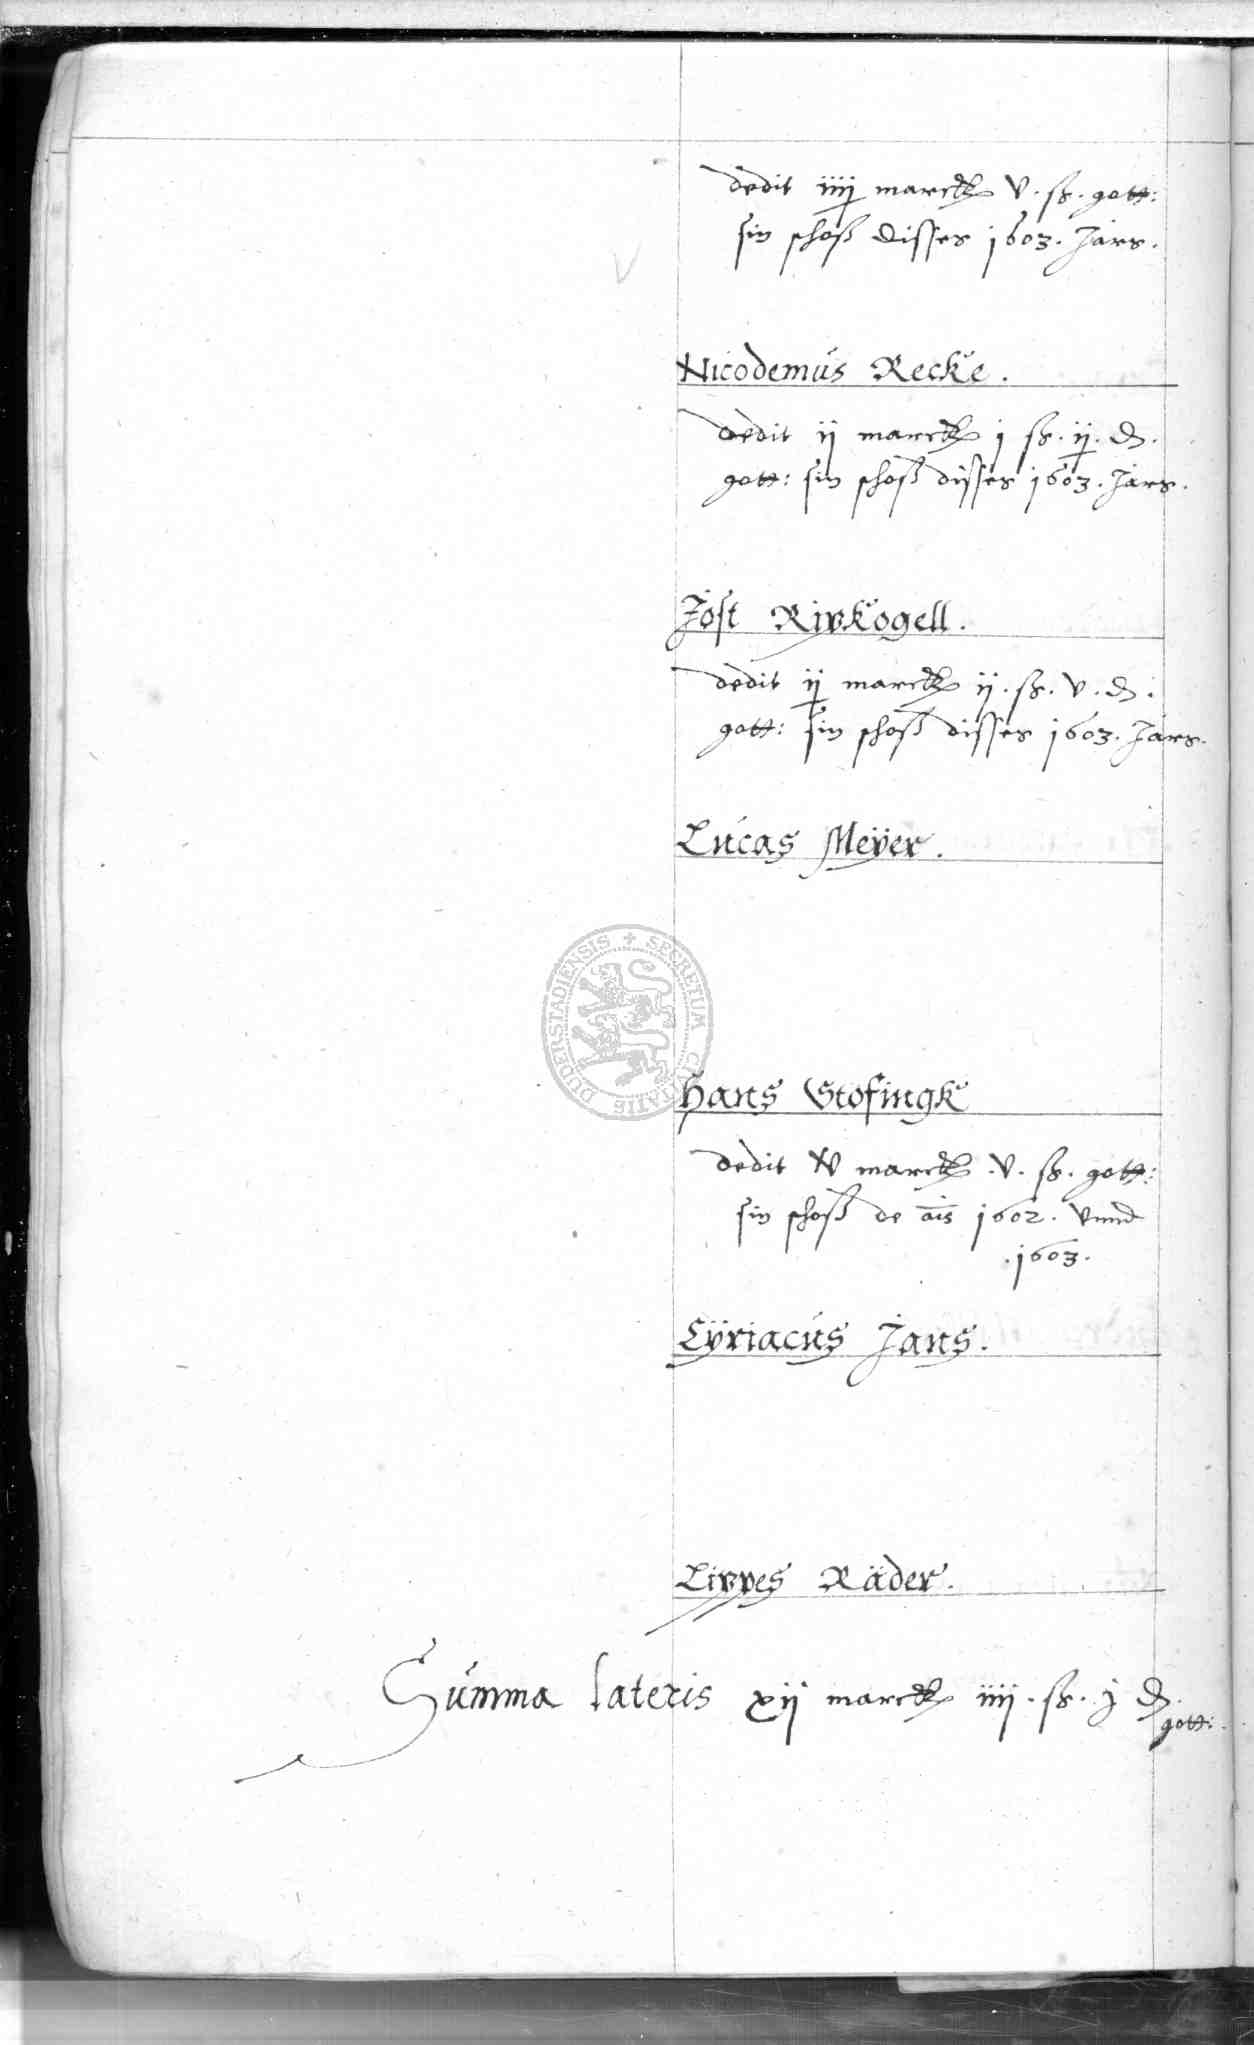 dedit iiij marck v. ß. gott:
sin schoß disses 1603. Jars.
Nicodemus Recke.
dedit ij marck j ß. ij. d.
gott: sin schoß disses 1603. Jars.
Jost Ripkogell.
dedit ij marck ij. ß. v. d.
gott: sin schoß disses 1603. Jars.
Lucas Meÿer.
SECRETUM CIVITATIS DUDERSTADIENSIS
Hans Stofingk
dedit v marck .v. ß. gott:
sin schoß de ais 1602. vnnd
.1603.
Cÿriacus Jans.
Lippes Räder.
Summa lateris xij marck iiij. ß. j d.
gott: